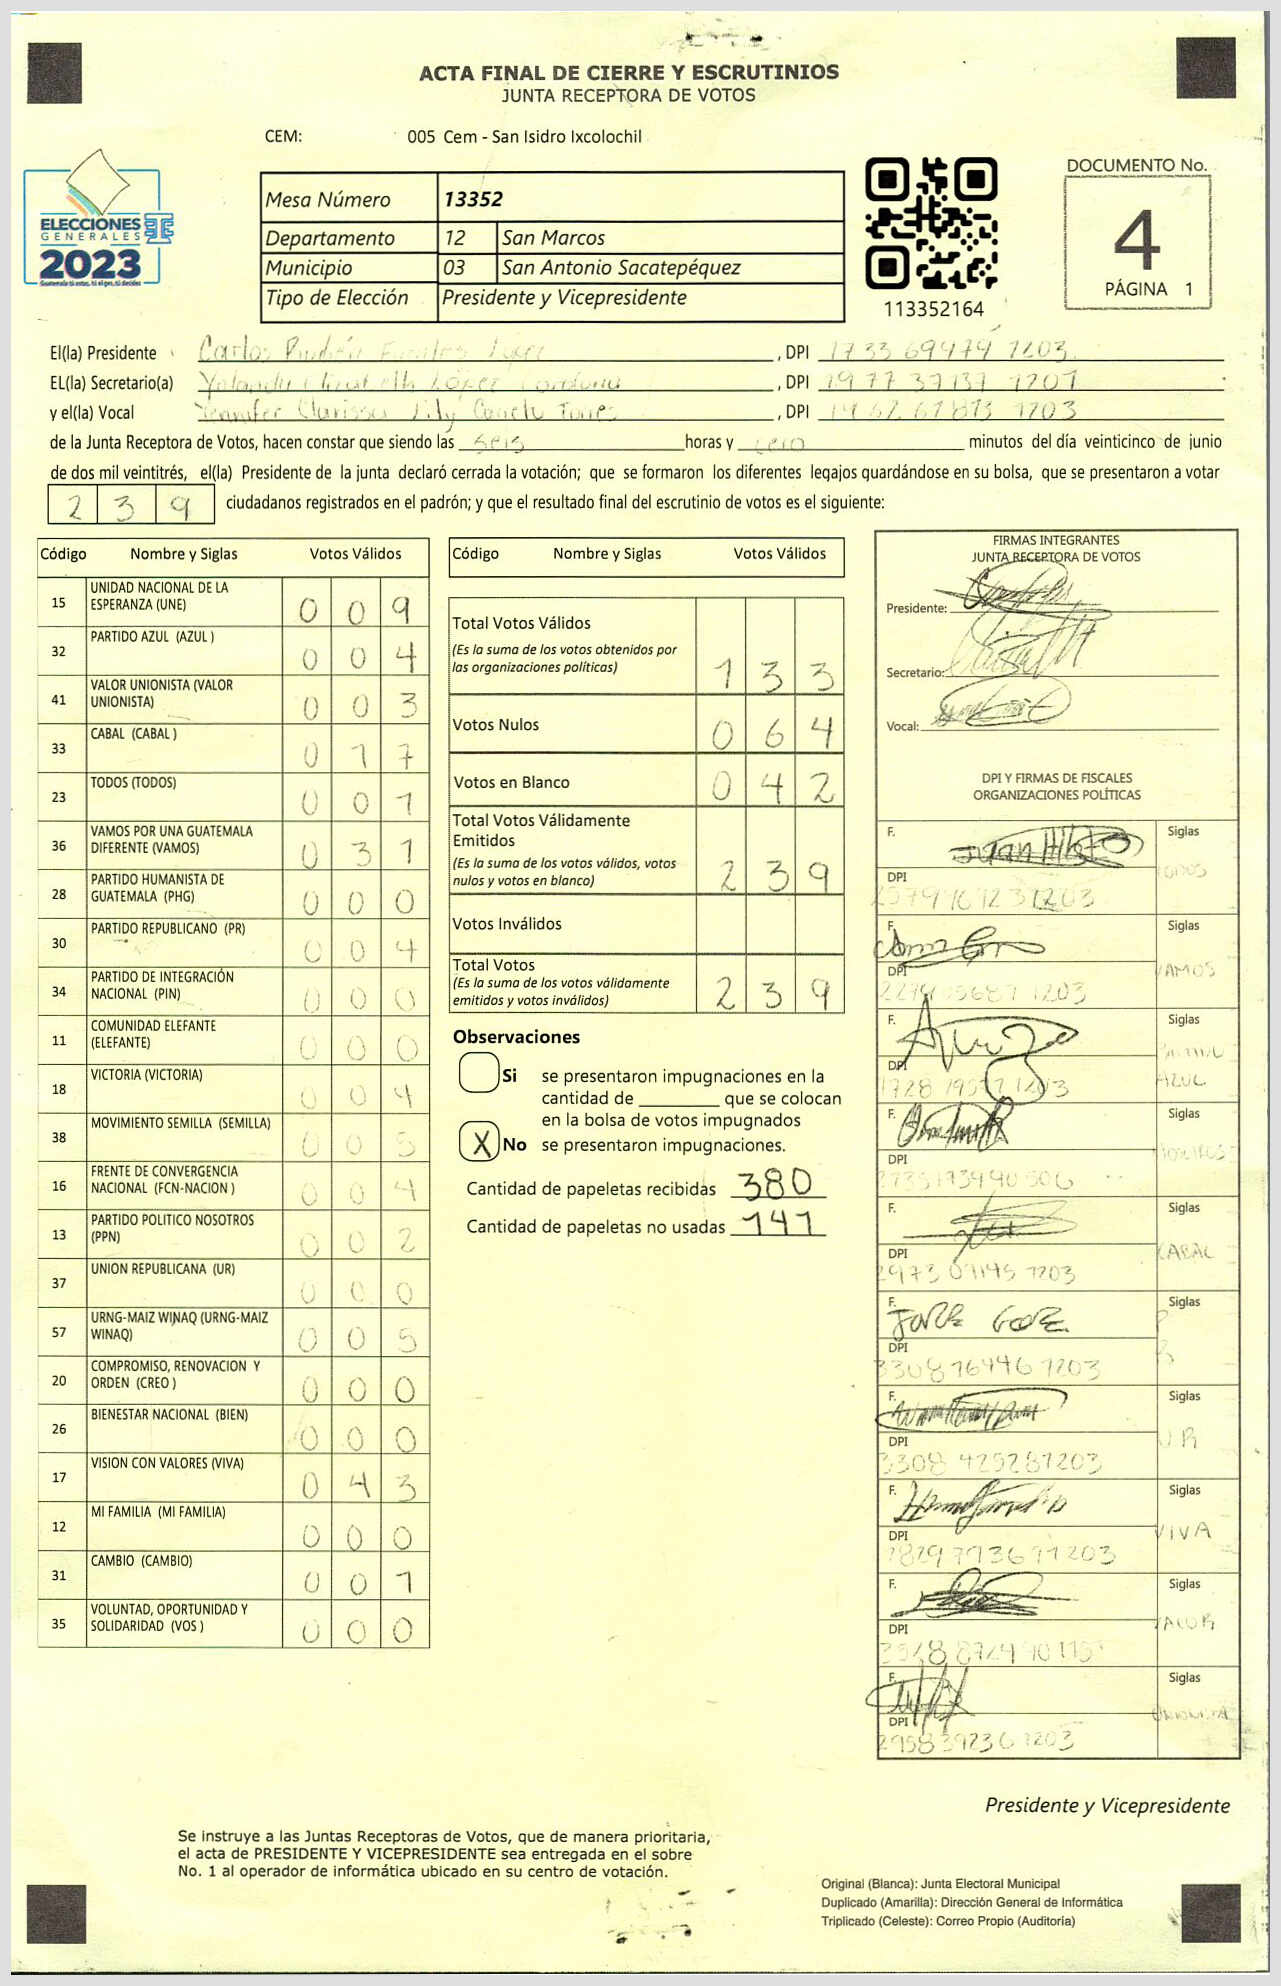 ACTA FINAL DE CIERRE Y ESCRUTINIOS
JUNTA RECEPTORA DE VOTOS
CEM: 005 Cem - San Isidro Ixcolochil
ELECCIONES
GENERALES
2023
Mesa Número 13352
Departamento 12 San Marcos
Municipio 03 San Antonio Sacatepéquez
Tipo de Elección Presidente y Vicepresidente
113352164
DOCUMENTO No.
4
PÁGINA 1
El(la) Presidente Carlos , DPI
EL(la) Secretario(a) López , DPI
y el(la) Vocal Jennifer , DPI
de la Junta Receptora de Votos, hacen constar que siendo las seis horas y cero minutos del día veinticinco de junio
de dos mil veintitrés, el(la) Presidente de la junta declaró cerrada la votación; que se formaron los diferentes legajos guardándose en su bolsa, que se presentaron a votar
2 3 9 ciudadanos registrados en el padrón; y que el resultado final del escrutinio de votos es el siguiente:
Código Nombre y Siglas Votos Válidos
15 UNIDAD NACIONAL DE LA ESPERANZA (UNE) 0 0 9
32 PARTIDO AZUL (AZUL ) 0 0 4
41 VALOR UNIONISTA (VALOR UNIONISTA) 0 0 3
33 CABAL (CABAL ) 0 1 7
23 TODOS (TODOS) 0 0 1
36 VAMOS POR UNA GUATEMALA DIFERENTE (VAMOS) 0 3 1
28 PARTIDO HUMANISTA DE GUATEMALA (PHG) 0 0 0
30 PARTIDO REPUBLICANO (PR) 0 0 4
34 PARTIDO DE INTEGRACIÓN NACIONAL (PIN) 0 0 0
11 COMUNIDAD ELEFANTE (ELEFANTE) 0 0 0
18 VICTORIA (VICTORIA) 0 0 4
38 MOVIMIENTO SEMILLA (SEMILLA) 0 0 5
16 FRENTE DE CONVERGENCIA NACIONAL (FCN-NACION ) 0 0 4
13 PARTIDO POLITICO NOSOTROS (PPN) 0 0 2
37 UNION REPUBLICANA (UR) 0 0 0
57 URNG-MAIZ WINAQ (URNG-MAIZ WINAQ) 0 0 5
20 COMPROMISO, RENOVACION Y ORDEN (CREO ) 0 0 0
26 BIENESTAR NACIONAL (BIEN) 0 0 0
17 VISION CON VALORES (VIVA) 0 4 3
12 MI FAMILIA (MI FAMILIA) 0 0 0
31 CAMBIO (CAMBIO) 0 0 1
35 VOLUNTAD, OPORTUNIDAD Y SOLIDARIDAD (VOS ) 0 0 0
Código Nombre y Siglas Votos Válidos
Total Votos Válidos
(Es la suma de los votos obtenidos por
las organizaciones políticas) 1 3 3
Votos Nulos 0 6 4
Votos en Blanco 0 4 2
Total Votos Válidamente
Emitidos
(Es la suma de los votos válidos, votos
nulos y votos en blanco) 2 3 9
Votos Inválidos
Total Votos
(Es la suma de los votos válidamente
emitidos y votos inválidos) 2 3 9
Observaciones
Si se presentaron impugnaciones en la
cantidad de ________ que se colocan
en la bolsa de votos impugnados
X No se presentaron impugnaciones.
Cantidad de papeletas recibidas 380
Cantidad de papeletas no usadas 141
FIRMAS INTEGRANTES
JUNTA RECEPTORA DE VOTOS
Presidente:
Secretario:
Vocal:
DPI Y FIRMAS DE FISCALES
ORGANIZACIONES POLÍTICAS
F. Siglas
DPI TODOS
F. Siglas
DPI VAMOS
F. Siglas
DPI AZUL
F. Siglas
DPI
F. Siglas
DPI CABAL
F. Siglas
DPI P R
F. Siglas
DPI U R
F. Siglas
DPI VIVA
F. Siglas
DPI VALOR
F. Siglas
DPI UNIONISTA
Presidente y Vicepresidente
Se instruye a las Juntas Receptoras de Votos, que de manera prioritaria,
el acta de PRESIDENTE Y VICEPRESIDENTE sea entregada en el sobre
No. 1 al operador de informática ubicado en su centro de votación.
Original (Blanca): Junta Electoral Municipal
Duplicado (Amarilla): Dirección General de Informática
Triplicado (Celeste): Correo Propio (Auditoria)